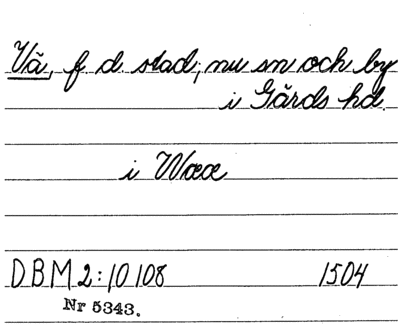 Vä, f. d. stad; nu sn och by
i Gärds hd.
i Wææ
DBM 2:10108 1504
Nr 5343.